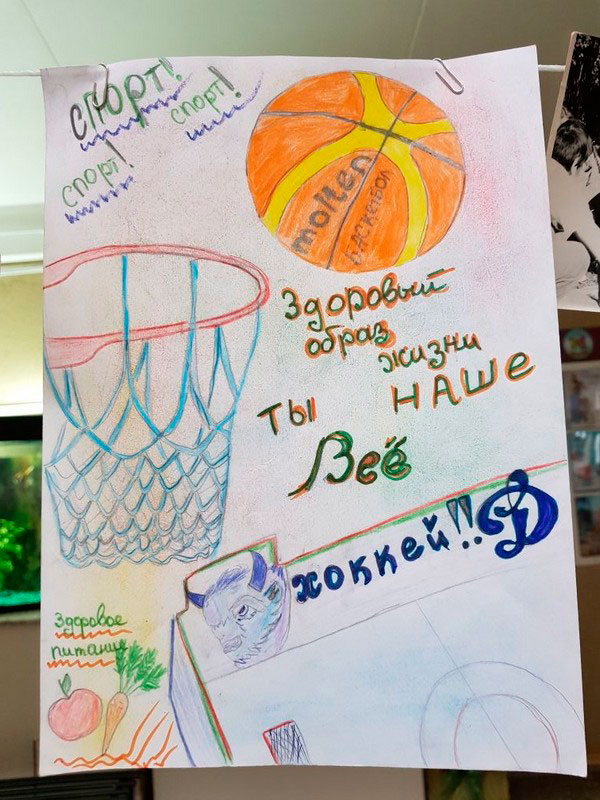 спорт!
спорт!
спорт!
molten
БАСКЕТБОЛ
Здоровый
образ
жизни
ТЫ НАШЕ
Всё
хоккей!! Д
Здоровое
питание